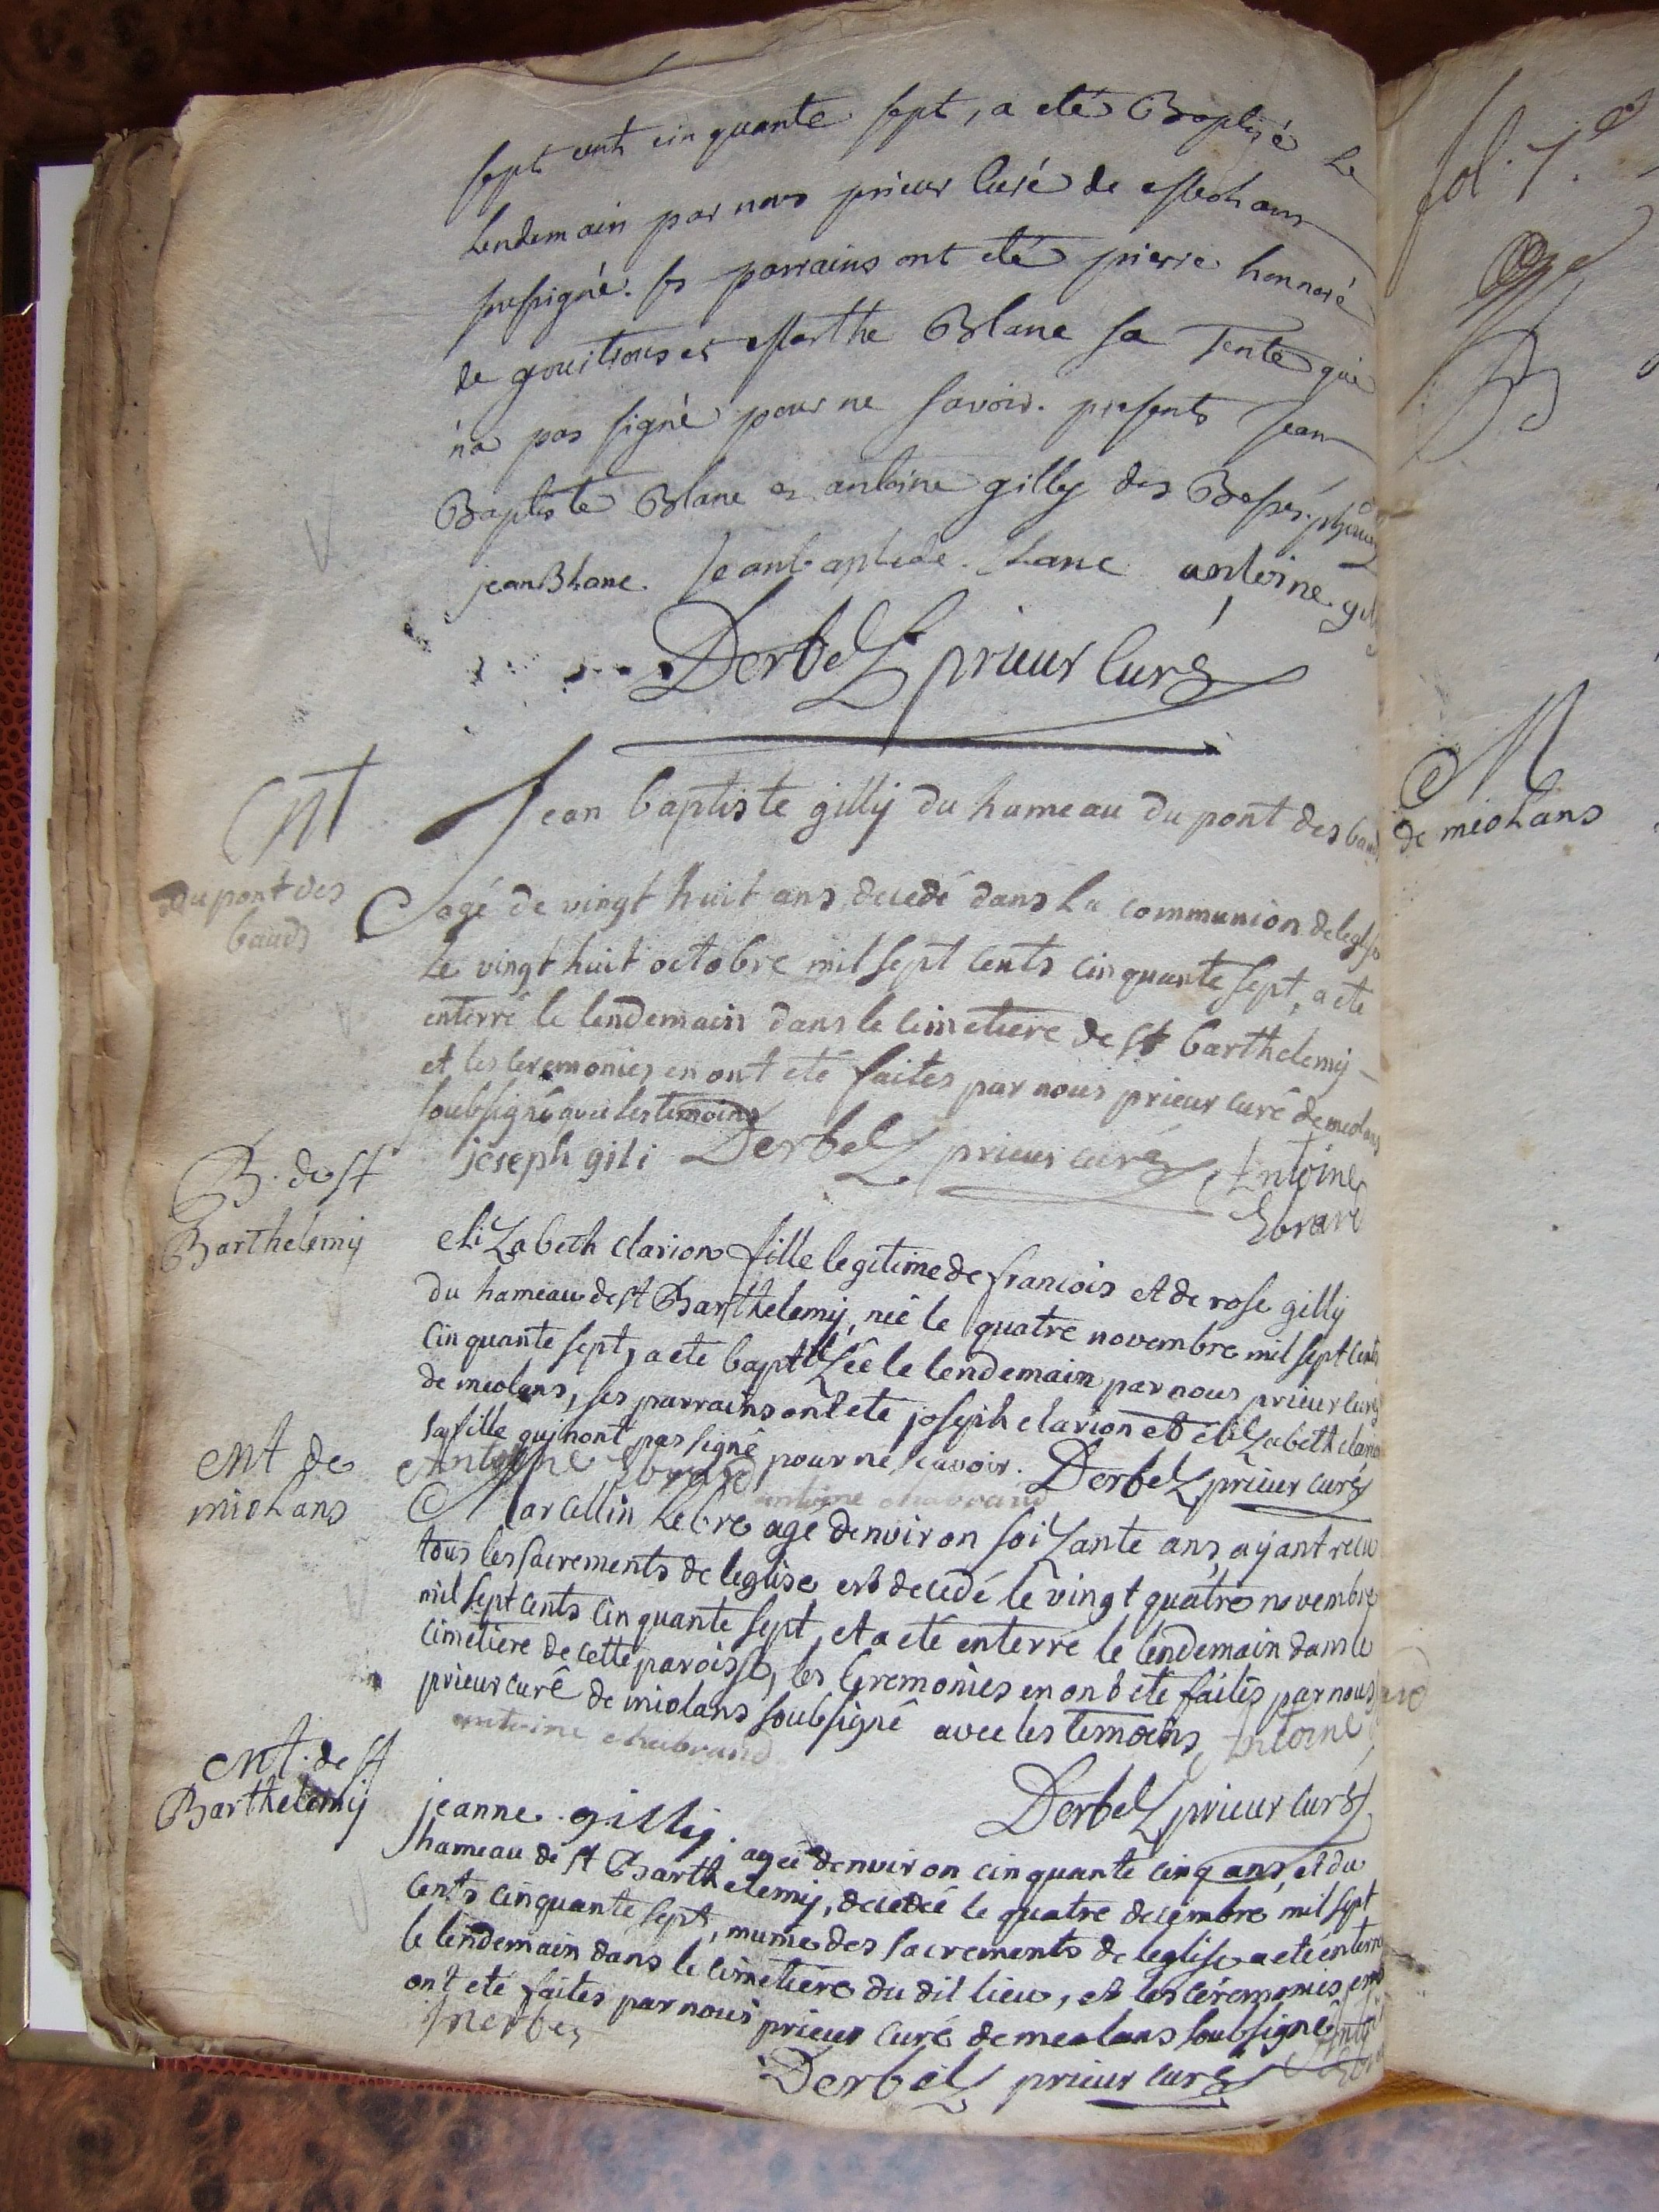 sept cent cinquante sept, a eté Baptisé Le
Lendemain par nous prieur Curé de Meolans
soussigné. ses parrains ont eté pierre honnoré
de gouitrous et Marthe Blanc sa Tente qui
n'a pas signé pour ne savoir. presents Jean
Baptiste Blanc et antoine gilly des
jean Blanc. Jean baptiste. blanc antoine gil
DerbeZ prieur Curé
Mt
du pont des
bauds
Jean baptiste gilly du hameau du pont des bauds
agé de vingt huit ans decedé dans La communion de leglise
Le vingt huit octobre mil sept cents cinquante sept, a ete
enterré le lendemain dans le cimetiere de st barthelemy
et les ceremonies en ont eté faites par nous prieur curé de meolans
soubsigné avec les temoins
joseph gili DerbeZ prieur curé Antoine
Ebrard
B. de st
Barthelemy
eliZabeth clarion fille legitime de francois et de rose gilly
du hameau de st Barthelemy, née le quatre novembre mil sept cents
cinquante sept, a ete baptiZée le lendemain par nous prieur curé
de meolans, ses parrains ont ete joseph clarion et eliZabeth clarion
sa fille qui n'ont pas signé pour ne scavoir. DerbeZ prieur curé
Antoine Ebrard antoine chabrand
Mt de
miolans
Marcellin Lebre agé denviron soiZante ans, ayant recu
tous les sacrements de leglise est decedé le vingt quatre novembre
mil sept cents cinquante sept, et a eté enterré le lendemain dans le
cimetiere de cette paroisse, les Ceremonies en ont eté faites par nous
prieur curé de miolans soubsigné avec les temoins Antoine
antoine chabrand
DerbeZ prieur curé
Mt. de st
Barthelemy
jeanne gilly. agée denviron cinquante cinq ans, et du
hameau de st Barthelemy, decedée le quatre decembre mil sept
cents cinquante sept, munie des sacrements de leglise a eté enterré
le lendemain dans le cimetiere du dit lieu, et les céremonies en
ont eté faites par nous prieur curé de meolans soubsigné
DerbeZ prieur curé
fol. 7.e
M
de miolans